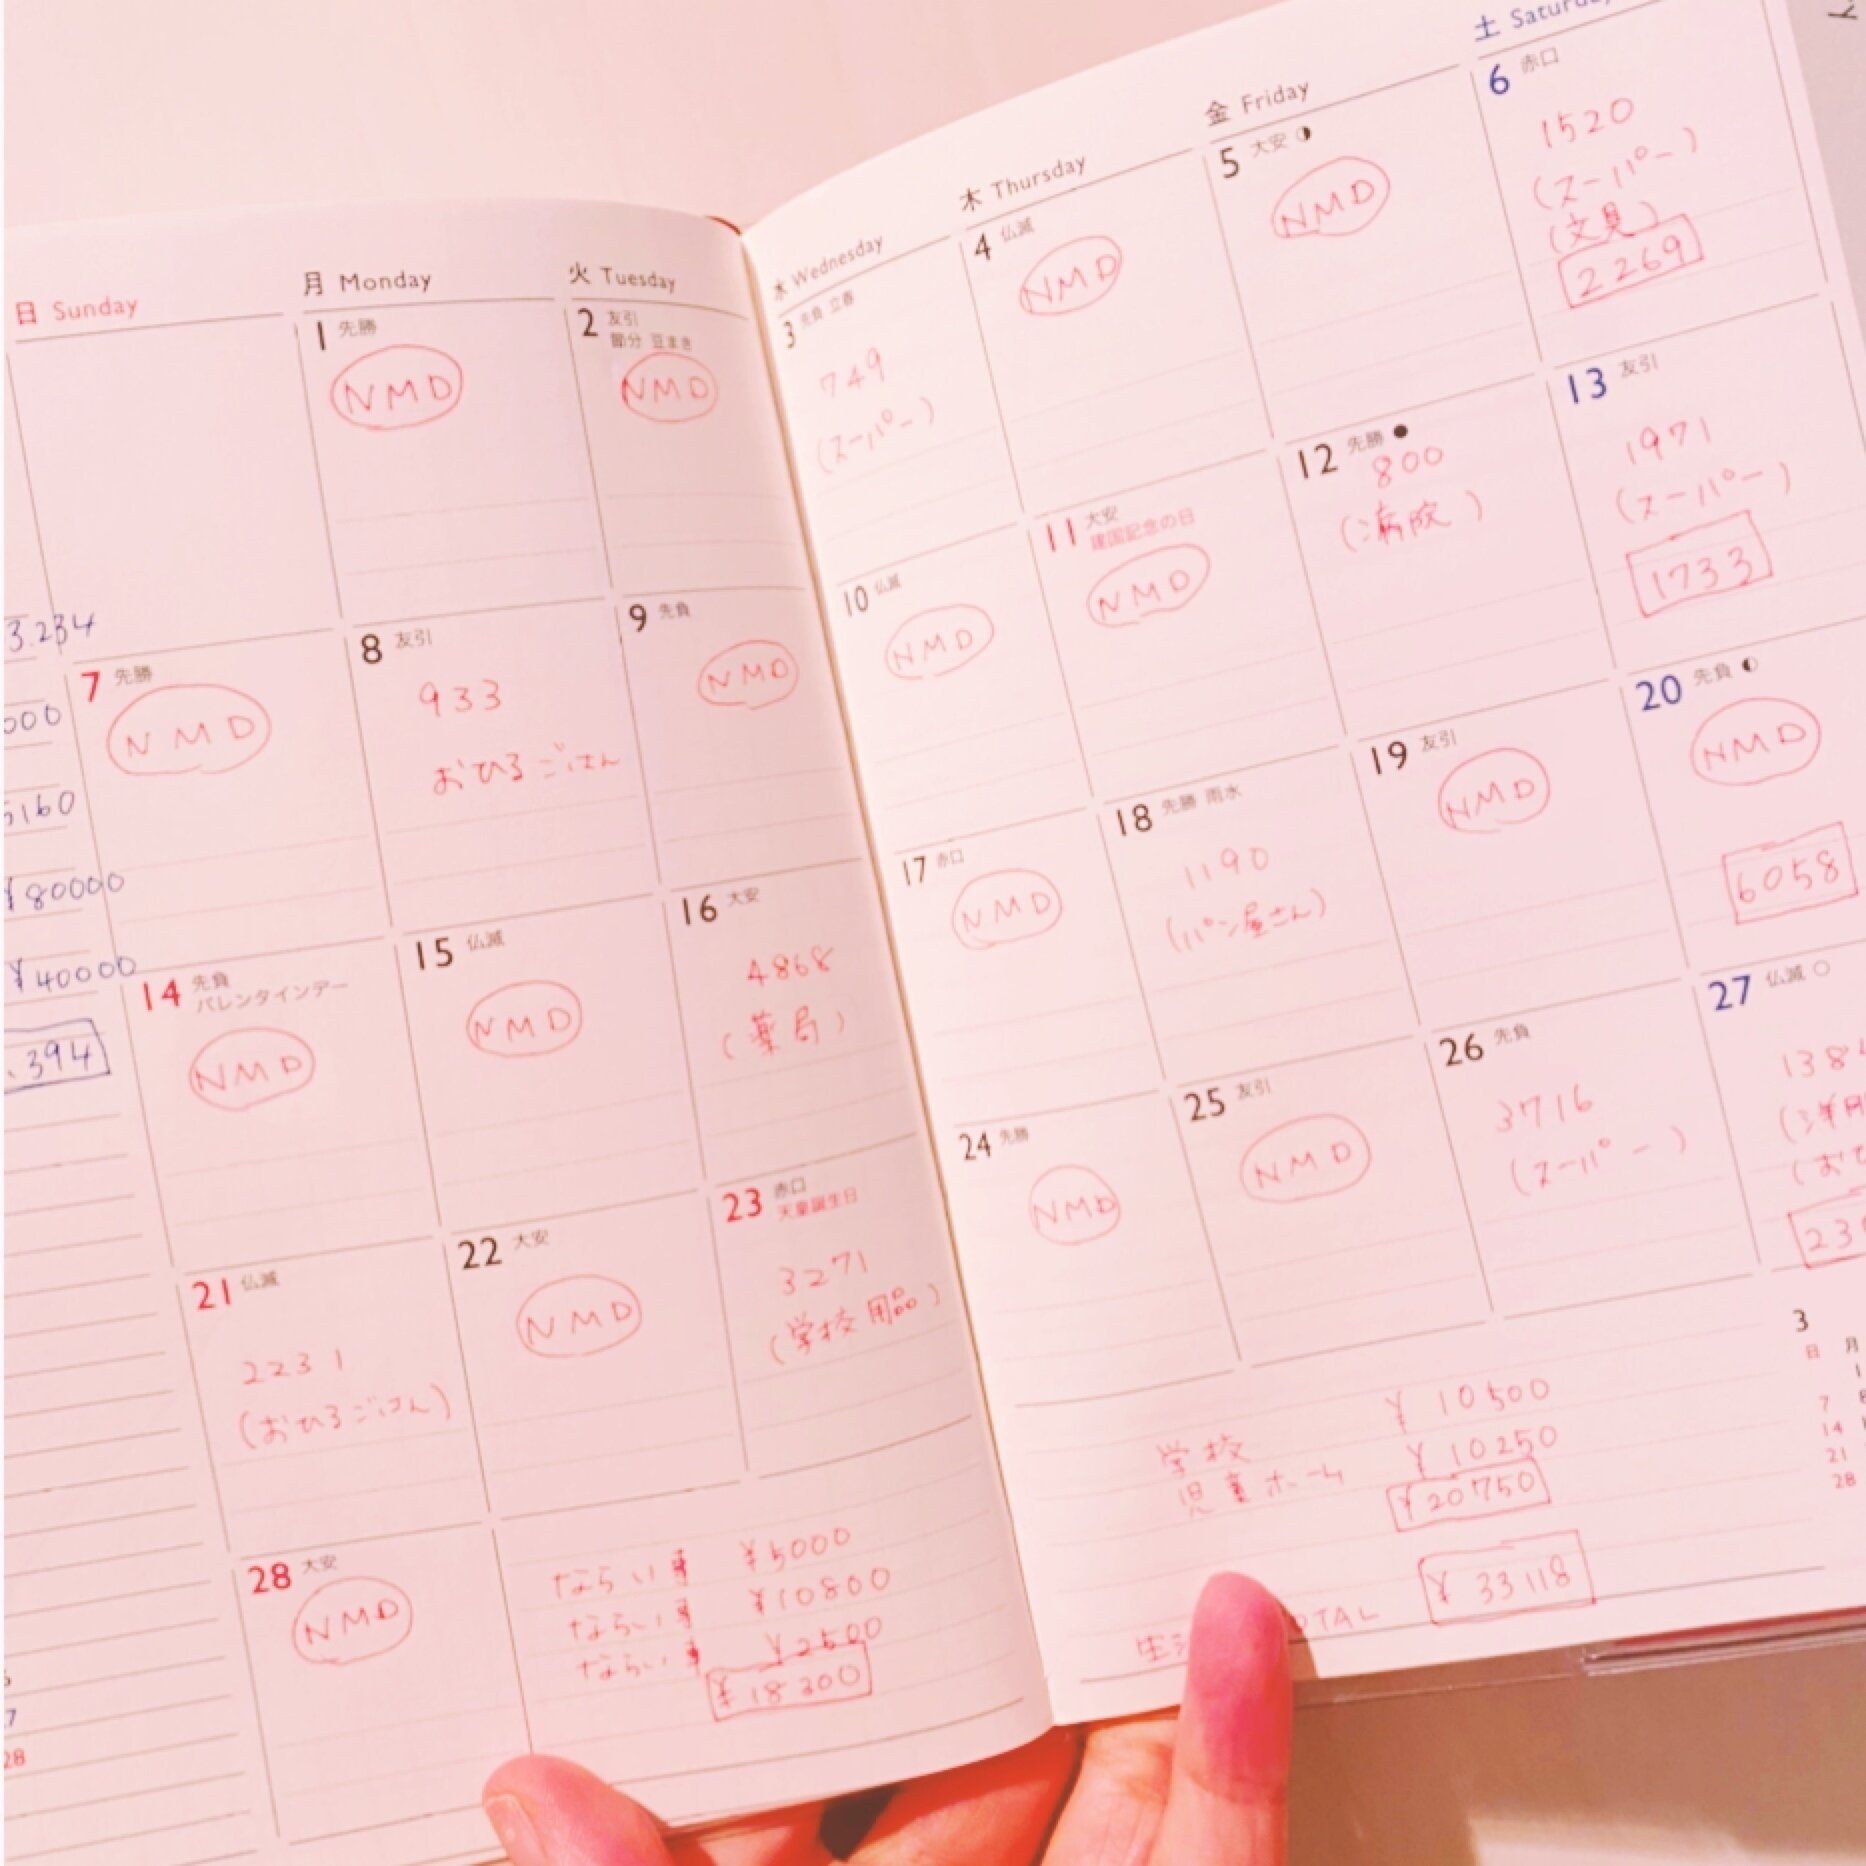 日 Sunday
月 Monday
火 Tuesday
水 Wednesday
木 Thursday
金 Friday
土 Saturday
1 先勝
NMD
2 友引
節分 豆まき
NMD
3 先負 立春
749
(スーパー)
4 仏滅
NMD
5 大安
NMD
6 赤口
1520
(スーパー)
(文具)
2269
7 先勝
NMD
8 友引
933
おひるごはん
9 先負
NMD
10 仏滅
NMD
11 大安
建国記念の日
NMD
12 先勝
800
(病院)
13 友引
1971
(スーパー)
1733
14 先負
バレンタインデー
NMD
15 仏滅
NMD
16 大安
4868
(薬局)
17 赤口
NMD
18 先勝 雨水
1190
(パン屋さん)
19 友引
NMD
20 先負
NMD
6058
21 仏滅
2231
(おひるごはん)
22 大安
NMD
23 赤口
天皇誕生日
3271
(学校用品)
24 先勝
NMD
25 友引
NMD
26 先負
3716
(スーパー)
27 仏滅
28 大安
NMD
ならい事 ¥5000
ならい事 ¥10800
ならい事 ¥2500
¥18300
学校 ¥10500
児童ホーム ¥10250
¥20750
¥33118
3.234
000
5160
¥80000
¥40000
394
3
日 月
7
14
21
28
7
28